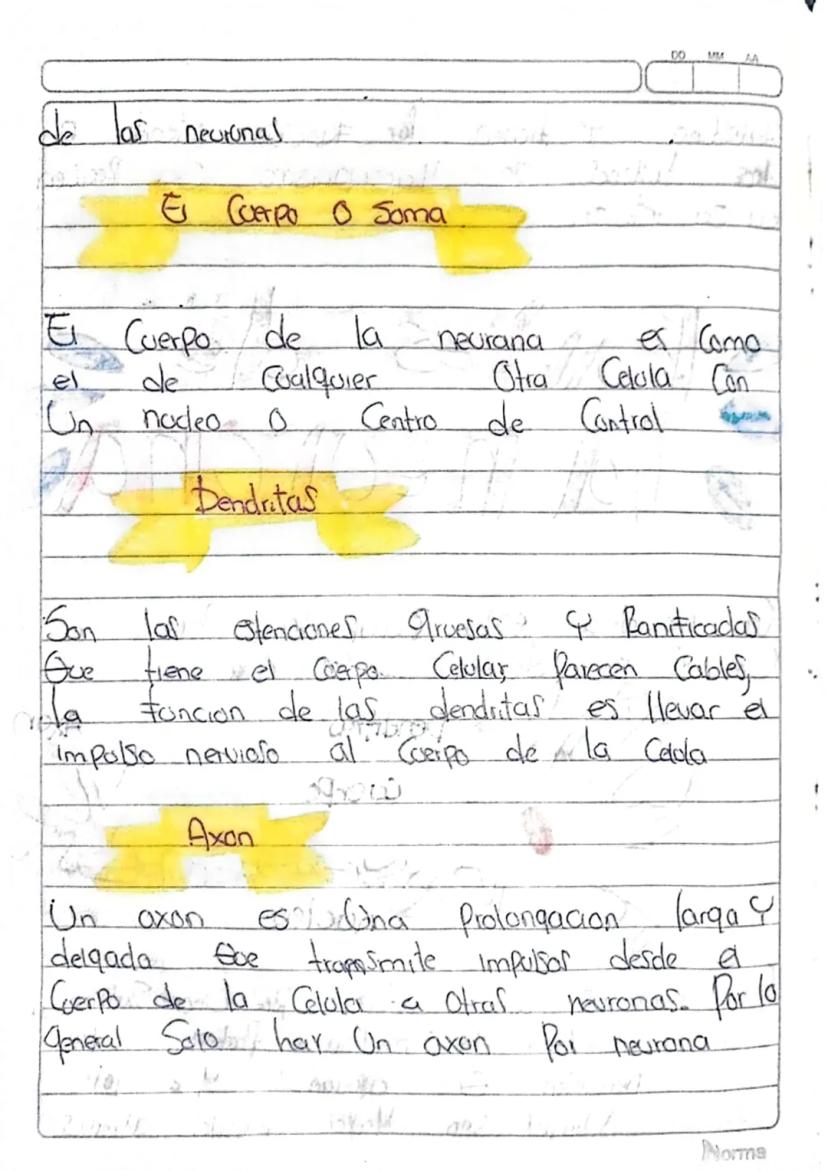 DD MM AA
de las neuronas
El Cuerpo O Soma
El Cuerpo de la neurana es Como
el de Cualquier Otra Celula Con
Un nucleo o Centro de Control
Dendritas
Son las estenciones gruesas y Ramificadas
Que tiene el Cuerpo Celular, Parecen Cables,
la funcion de las dendritas es llevar el
impulso nervioso al Cuerpo de la Celula
Axon
Un axon es Una Prolongacion larga y
delgada Que transmite impulsos desde el
Cuerpo de la Celula a Otras neuronas. Por lo
general Solo hay Un axon Por neurona
Norma